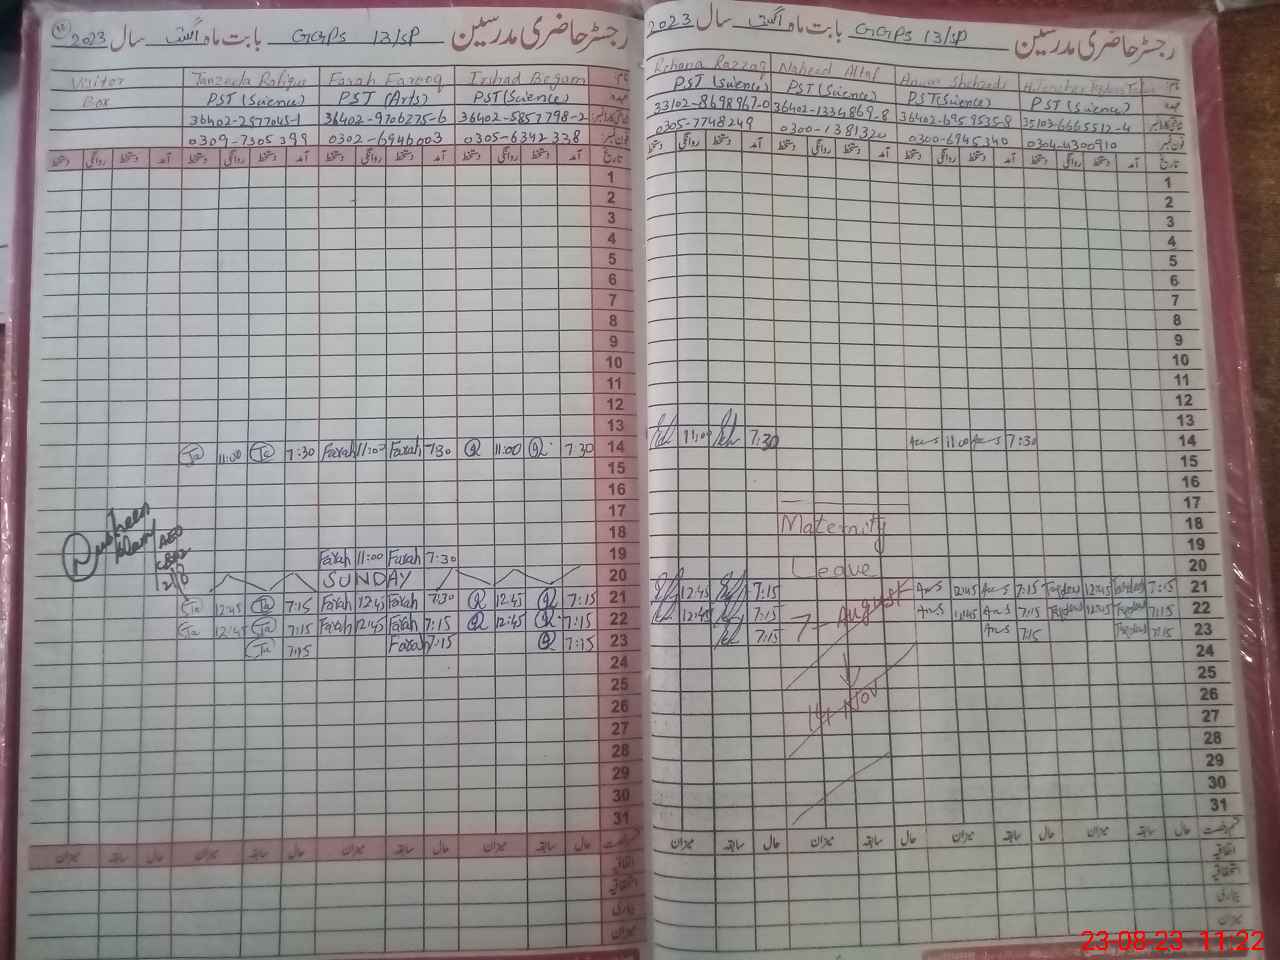 رجسٹر حاضری مدرسین GGPs 13/SP بابت ماہ اگست سال 2023
Visitor Tanzeela Rafique Farah Farooq Irshad Begam نام
Box PST (Science) PST (Arts) PST (Science) عہدہ
36402-2977045-1 36402-9706275-6 36402-5857798-2
0309-7305399 0302-6946003 0305-6342338
دستخط روانگی دستخط آمد دستخط روانگی دستخط آمد دستخط روانگی دستخط آمد دستخط روانگی دستخط آمد تاریخ
1
2
3
4
5
6
7
8
9
10
11
12
13
11:00 7:30 Farah 11:00 Farah 7:30 11:00 7:30 14
15
16
17
18
Farah 11:00 Farah 7:30 19
SUNDAY 20
12:45 7:15 Farah 12:45 Farah 7:30 12:45 7:15 21
12:45 7:15 Farah 12:45 Farah 7:15 12:45 7:15 22
7:15 Farah 7:15 7:15 23
24
25
26
27
28
29
30
31
میزان سابقہ حال میزان سابقہ حال میزان سابقہ حال میزان سابقہ حال
اتفاقیہ
استحقاقیہ
بیماری
میزان
رجسٹر حاضری مدرسین GGPs 13/SP بابت ماہ اگست سال 2023
Rehana Razzaq Naheed Altaf نام
PST (Science) PST (Science) PST (Science) PST (Science) عہدہ
33102-8698967-0 36402-1334869-8 36402-6959535-8 35103-6665512-4
0305-7748249 0300-1381320 0300-6945340 0304-4300910
دستخط روانگی دستخط آمد دستخط روانگی دستخط آمد دستخط روانگی دستخط آمد دستخط روانگی دستخط آمد تاریخ
1
2
3
4
5
6
7
8
9
10
11
12
13
11:00 7:30 11:00 7:30 14
15
16
17
Maternity 18
19
Leave 20
12:45 7:15 12:45 7:15 12:45 7:15 21
12:45 7:15 7-August 7:15 12:45 7:15 22
7:15 7:15 7:15 23
24
25
14 Nov 26
27
28
29
30
31
میزان سابقہ حال میزان سابقہ حال میزان سابقہ حال میزان سابقہ حال
اتفاقیہ
استحقاقیہ
بیماری
میزان
23-08-23 11:22